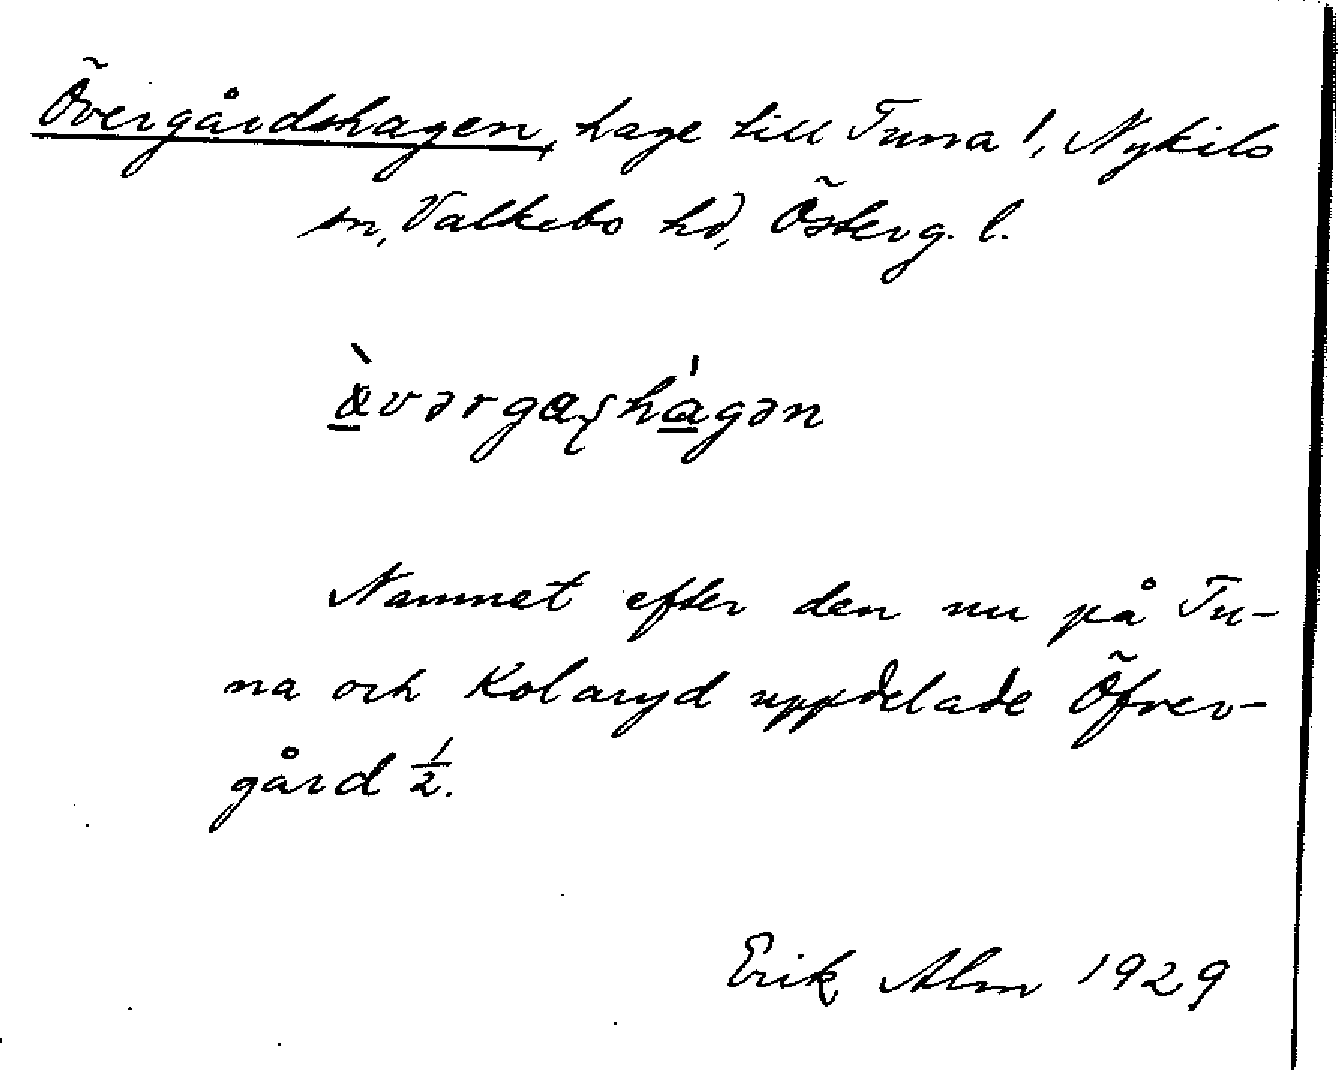 Övergårdshagen, hage till Tuna 1, Nykils
sn, Valkebo hd, Österg. l.
Namnet efter den nu på Tu-
na och Kolaryd uppdelade Öfver-
gård 1/2.
Erik Alm 1929